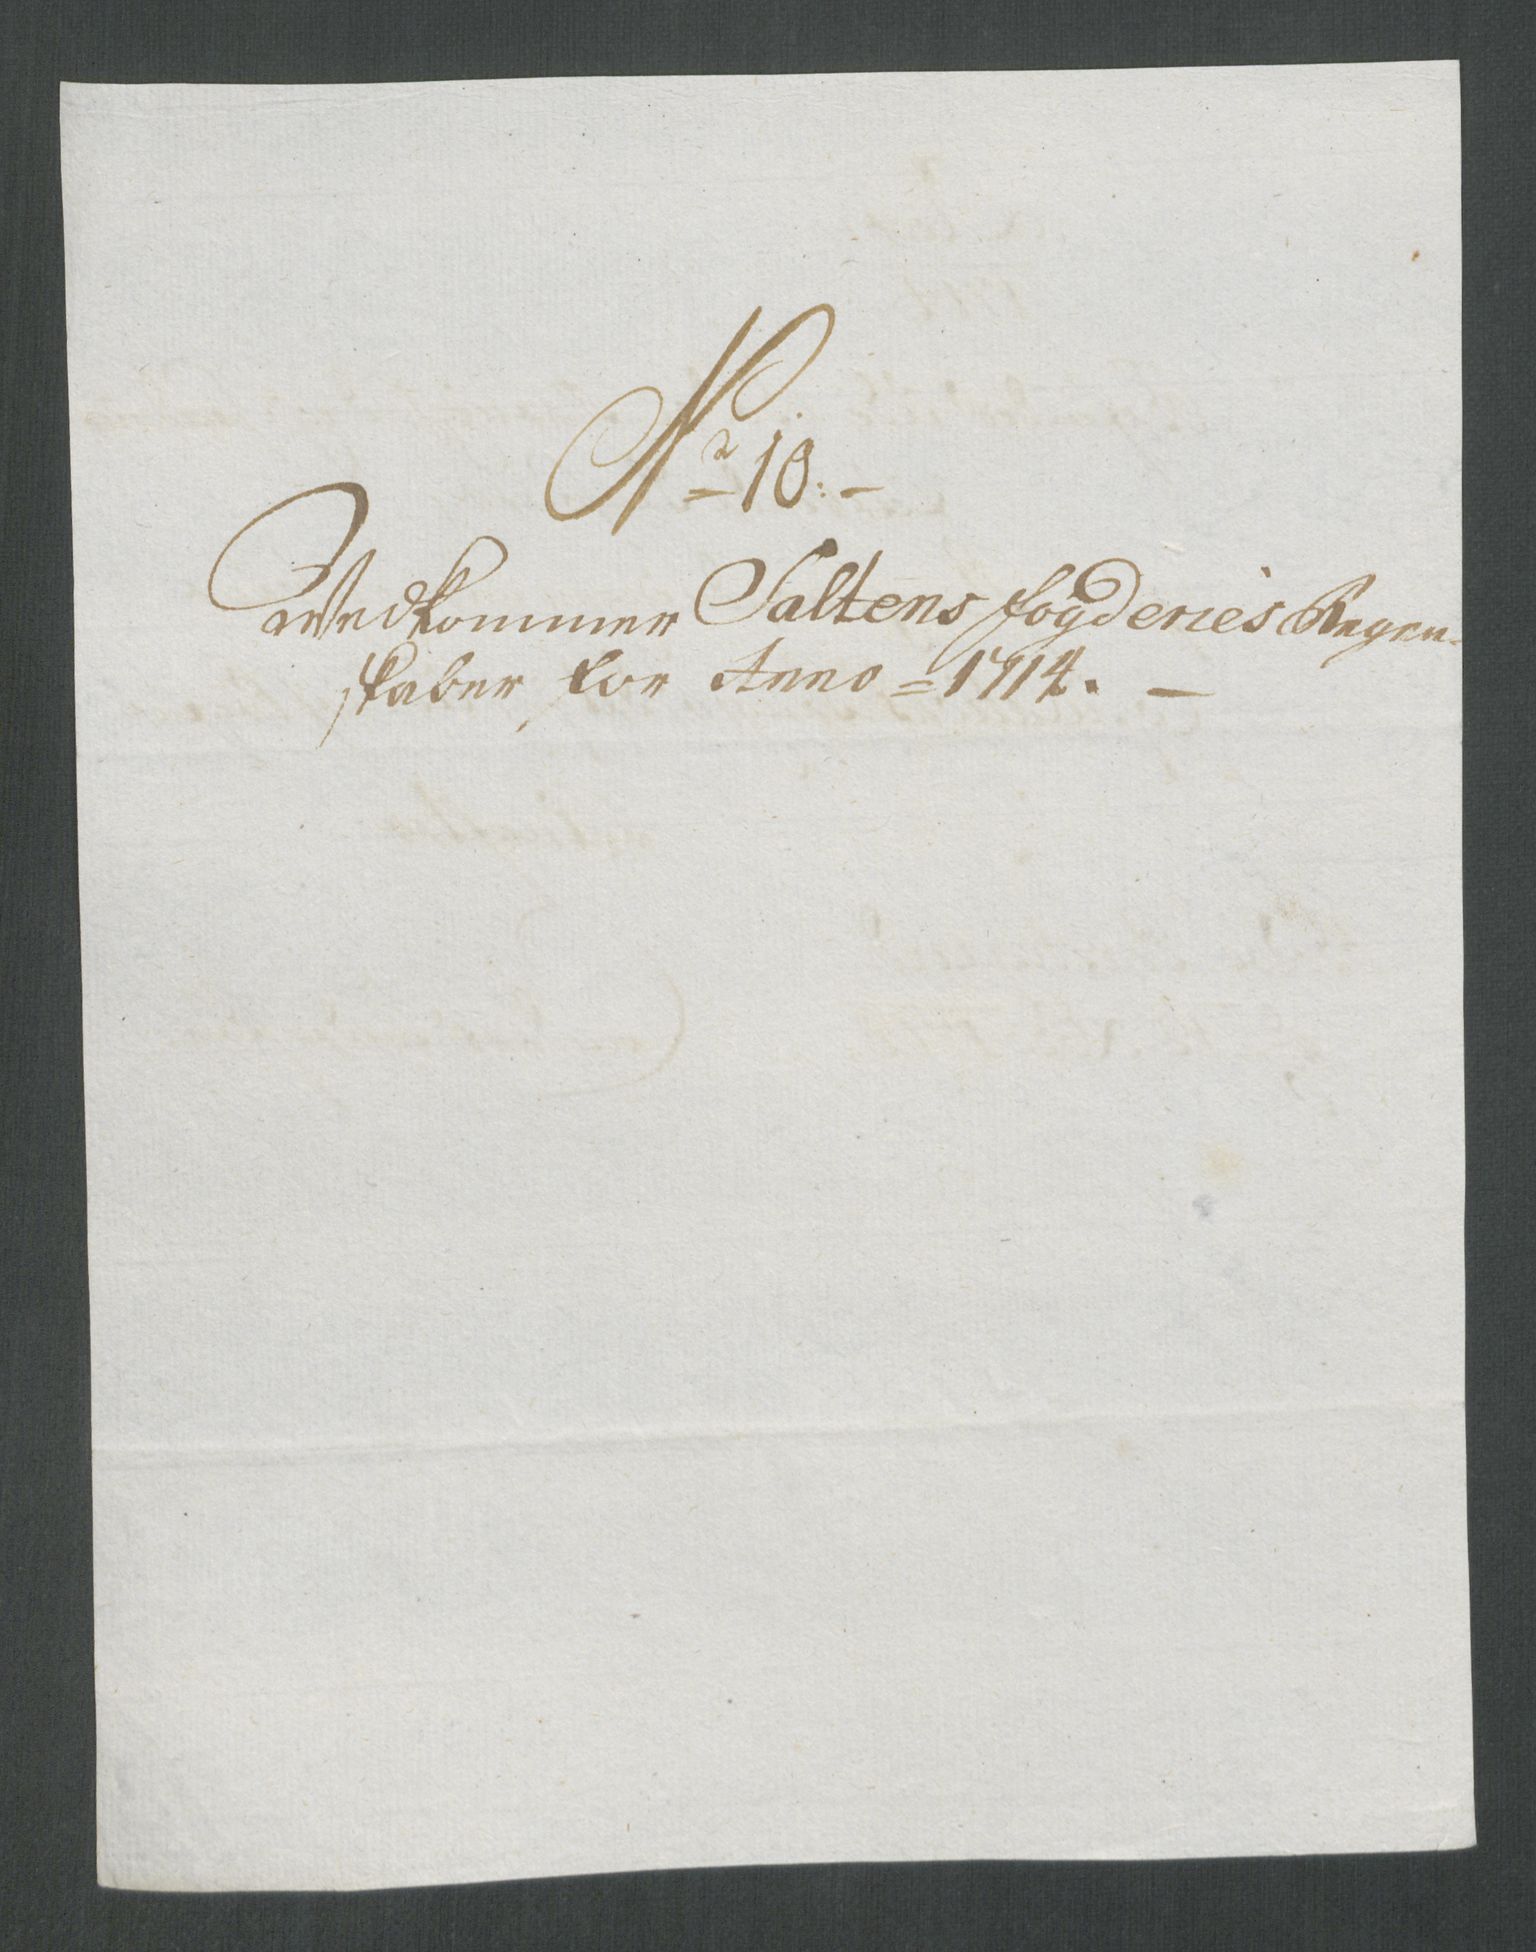 Nr 10:
Wedkommer Saltens fogderies Regen-
skaber for Anno 1714.